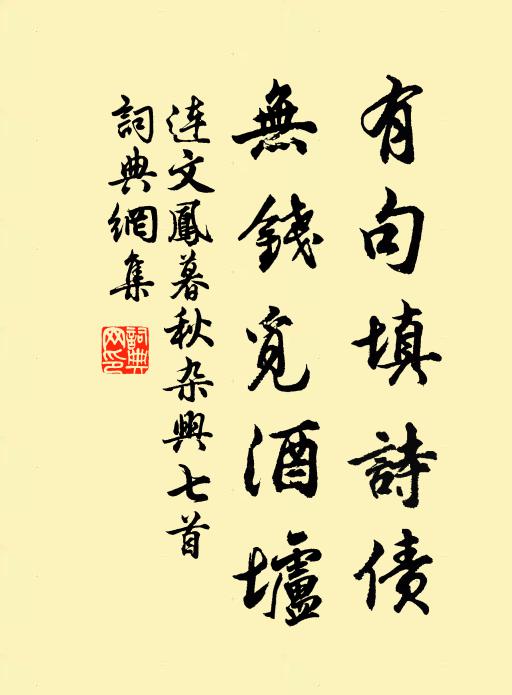 有句填詩债
無錢覓酒壚
连文鳳暮秋杂興七首
詞典網集
詞典网印